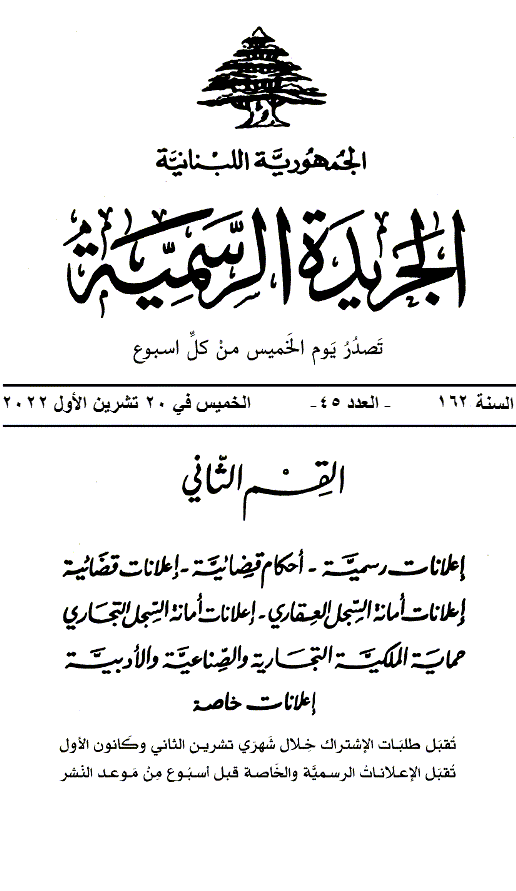 الجُمهُوريَّة اللبْنانيَّة
الجَريدَة الرسَّميَّة
تَصدُرُ يَوم الخَميس منْ كلِّ اسبوع
السنة ١٦٢ - العدد ٤٥- الخميس في ٢٠ تشرين الأول ٢٠٢٢
القِسْم الثّاني
إعلانات رسميَّة - أحكام قضائيَّة - إعلانات قضائية
إعلانات أمانة السِّجل العقاري - إعلانات أمانة السِّجل التجاري
حماية الملكيَّة التجارية والصِّناعيَّة والأدبيَّة
إعلانات خاصة
تُقبَل طلبَات الإشتراك خِلال شَهرَي تشرين الثاني وكَانون الأول
تُقبَل الإعلاناتُ الرسميَّة والخَاصة قبل أسبُوع مِنْ مَوعد النَشر